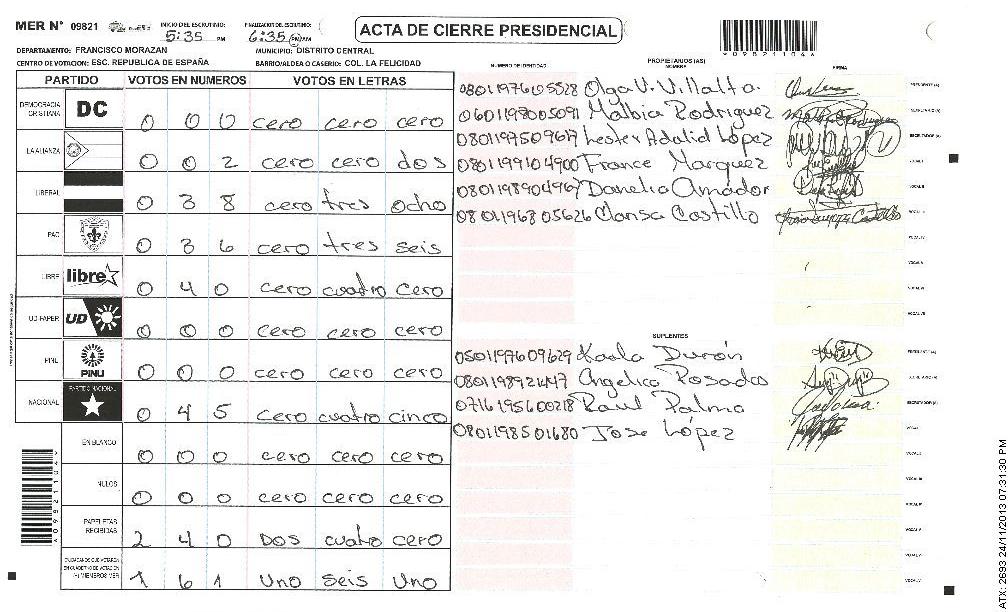 MER N° 09821
INICIO DEL ESCRUTINIO: 5:35 PM
FINALIZACION DEL ESCRUTINIO: 6:35 PM
ACTA DE CIERRE PRESIDENCIAL
DEPARTAMENTO: FRANCISCO MORAZAN MUNICIPIO: DISTRITO CENTRAL
CENTRO DE VOTACION: ESC. REPUBLICA DE ESPAÑA BARRIO/ALDEA O CASERIO: COL. LA FELICIDAD
PARTIDO VOTOS EN NUMEROS VOTOS EN LETRAS
DEMOCRACIA CRISTIANA DC 0 0 0 cero cero cero
LA ALIANZA 0 0 2 cero cero dos
LIBERAL 0 3 8 cero tres ocho
PAC 0 3 6 cero tres seis
LIBRE libre 0 4 0 cero cuatro cero
UD-FAPER UD 0 0 0 cero cero cero
PINU PINU 0 0 0 cero cero cero
NACIONAL PARTIDO NACIONAL 0 4 5 cero cuatro cinco
EN BLANCO 0 0 0 cero cero cero
NULOS 0 0 0 cero cero cero
PAPELETAS RECIBIDAS 2 4 0 Dos cuatro cero
1 6 1 Uno seis Uno
NUMERO DE IDENTIDAD PROPIETARIOS (AS) NOMBRE FIRMA
Olga V. Villalta. PRESIDENTE (A)
Malbia Rodriguez SECRETARIO (A)
Lester Adalid López ESCRUTADOR (A)
0801199104900 France Marquez VOCAL I
Danelia Amador VOCAL II
0801196805626 Castillo VOCAL III
VOCAL IV
VOCAL V
VOCAL VI
VOCAL VII
SUPLENTES
0501197609629 Karla Durón PRESIDENTE (A)
Angelica Posadas SECRETARIO (A)
0716195600218 Raul Palma ESCRUTADOR (A)
0801198501680 Jose López VOCAL I
VOCAL II
VOCAL III
VOCAL IV
VOCAL V
VOCAL VI
VOCAL VII
*09821104*
ATX: 2693 24/11/2013 07:31:30 PM